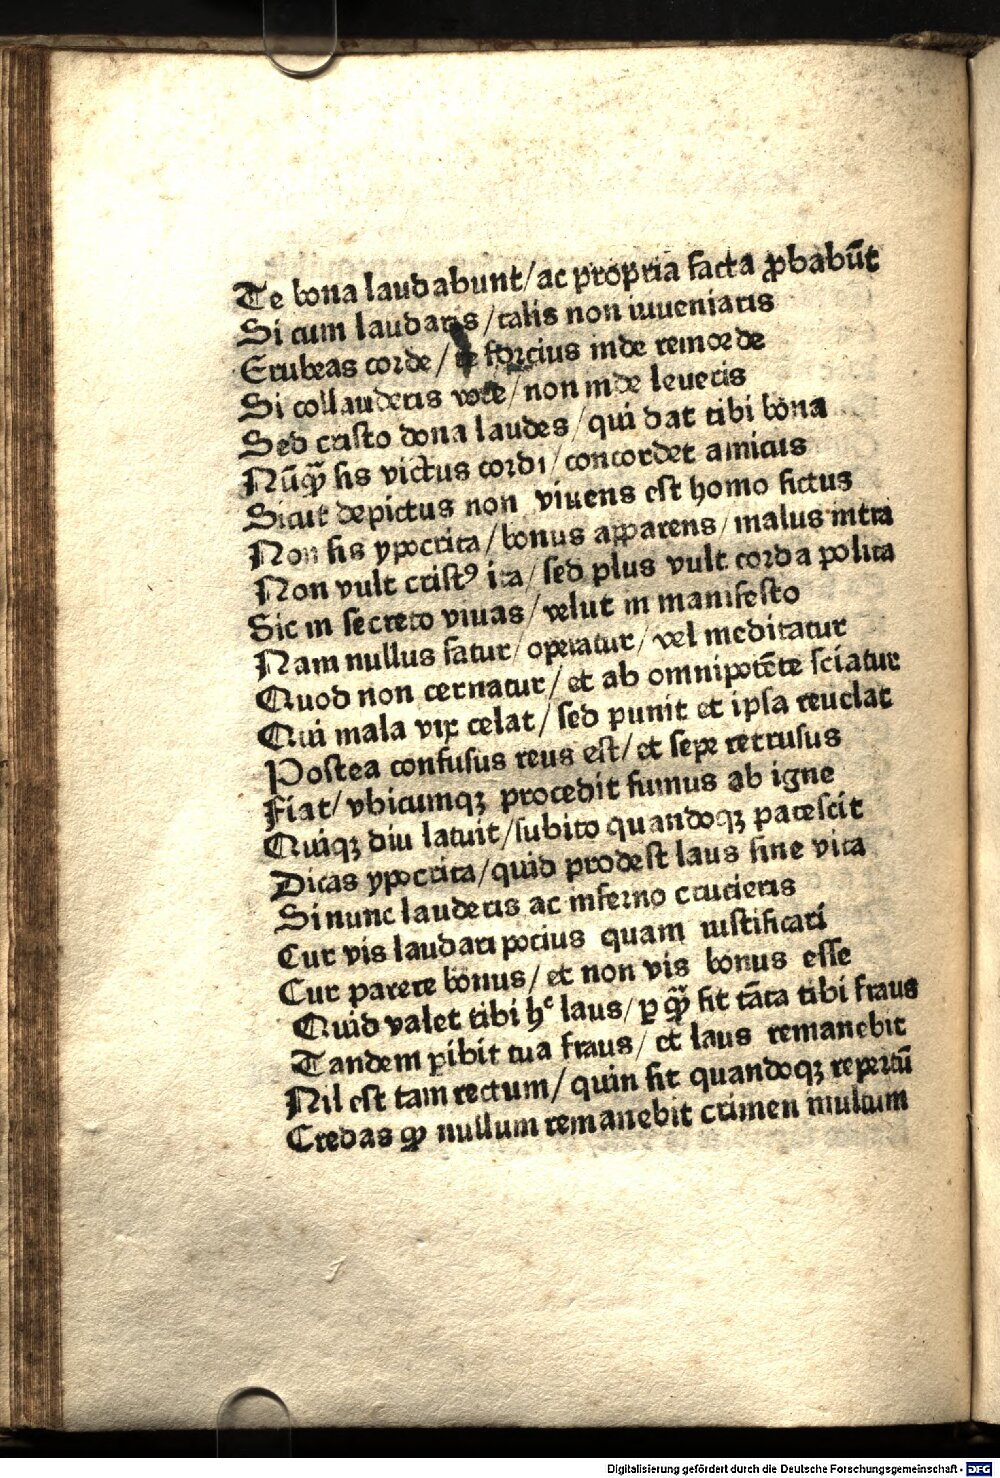 Te bona laudabunt/ac propria facta ꝓbabūt
Si cum laudaris/talis non inueniaris
Erubeas corde/te forcius inde remorde
Si collauderis voce/non inde leueris
Sed cristo dona laudes/qui dat tibi bona
Nūqꝫ̄ sis victus cordi/concordet amicus
Sicut depictus non viuens est homo fictus
Non sis ypocrita/bonus apparens/malus intra
Non vult cristꝰ ita/sed plus vult corda polita
Sic in secreto viuas/velut in manifesto
Nam nullus fatur/operatur/vel meditatur
Quod non cernatur/et ab omnipotēte sciatur
Qui mala vix celat/sed punit et ipsa reuelat
Postea confusus reus est/et sepe retrusus
Fiat/vbicumqꝫ procedit fumus ab igne
Quiqꝫ diu latuit/subito quandoqꝫ patescit
Dicas ypocrita/quid prodest laus sine vita
Si nunc lauderis ac inferno crucieris
Cur vis laudari pocius quam iustificari
Cur parere bonus/et non vis bonus esse
Quid valet tibi hᶜ laus/ꝑ qꝫ̄ fit tāta tibi fraus
Tandem ꝑibit tua fraus/et laus remanebit
Nil est tam rectum/quin fit quandoqꝫ repertū
Credas ꝙ nullum remanebit crimen multum
Digitalisierung gefördert durch die Deutsche Forschungsgemeinschaft - DFG